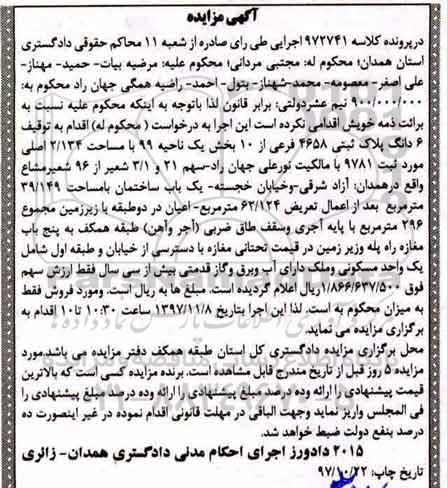 آگهی مزایده
درپرونده کلاسه ۹۷۲۷۴۱اجرایی طی رای صادره از شعبه ۱۱ محاکم حقوقی دادگستری
استان همدان؛ محکوم له: مجتبی مردانی؛ محکوم علیه: مرضیه بیات- حمید- مهناز-
علی اصغر- معصومه- محمد-شهناز- بتول- احمد- راضیه همگی جهان راد محکوم به:
۹۰۰/۰۰۰/۰۰۰ نیم عشردولتی: برابر قانون لذا باتوجه به اینکه محکوم علیه نسبت به
برائت ذمه خویش اقدامی نکرده است این اجرا به درخواست ( محکوم له) اقدام به توقیف
۶ دانگ پلاک ثبتی ۴۶۵۸ فرعی از ۱۰ بخش یک ناحیه ۹۹ با مساحت ۲/۱۳۴ اصلی
مورد ثبت ۹۷۸۱ با مالکیت نورعلی جهان راد-سهم ۲۱ و ۳/۱ شعیر از ۹۶ شعیرمشاع
واقع درهمدان: آزاد شرقی-وخیابان خجسته- یک باب ساختمان بامساحت ۳۹/۱۴۹
مترمربع بعد از اعمال تعریض ۶۲/۱۲۴ مترمربع- اعیان در دوطبقه با زیرزمین مجموع
۲۹۶ مترمربع با پایه آجری وسقف طاق ضربی (آجر وآهن) طبقه همکف به پنج باب
مغازه راه پله وزیر زمین در قیمت تحتانی مغازه با دسترسی از خیابان و طبقه اول شامل
یک واحد مسکونی وملک دارای آب وبرق وگاز قدمتی بیش از سی سال فقط ارزش سهم
فوق ۱/۸۶۶/۶۳۷/۵۰۰ریال اعلام گردیده است. مبلغ ها به ریال است. ومورد فروش فقط
به میزان محکوم به است. لذا این اجرا بتاریخ ۱۳۹۷/۱۱/۸ ساعت ۱۰:۳۰ تا ۱۰ اقدام به
برگزاری مزایده می نماید.
محل برگزاری مزایده دادگستری کل استان طبقه همکف دفتر مزایده می باشد.مورد
مزایده ۵ روز قبل از تاریخ مندرج قابل مشاهده است. برنده مزایده کسی است که بالاترین
قیمت پیشنهادی را ارائه وده درصد مبلغ پیشنهادی را ارائه وده درصد مبلغ پیشنهادی را
فی المجلس واریز نماید وجهت الباقی در مهلت قانونی اقدام نموده در غیر اینصورت ده
درصد بنفع دولت ضبط خواهد شد.
۲۰۱۵ دادورز اجرای احکام مدنی دادگستری همدان- زائری
تاریخ چاپ: ۹۷/۱۰/۲۲